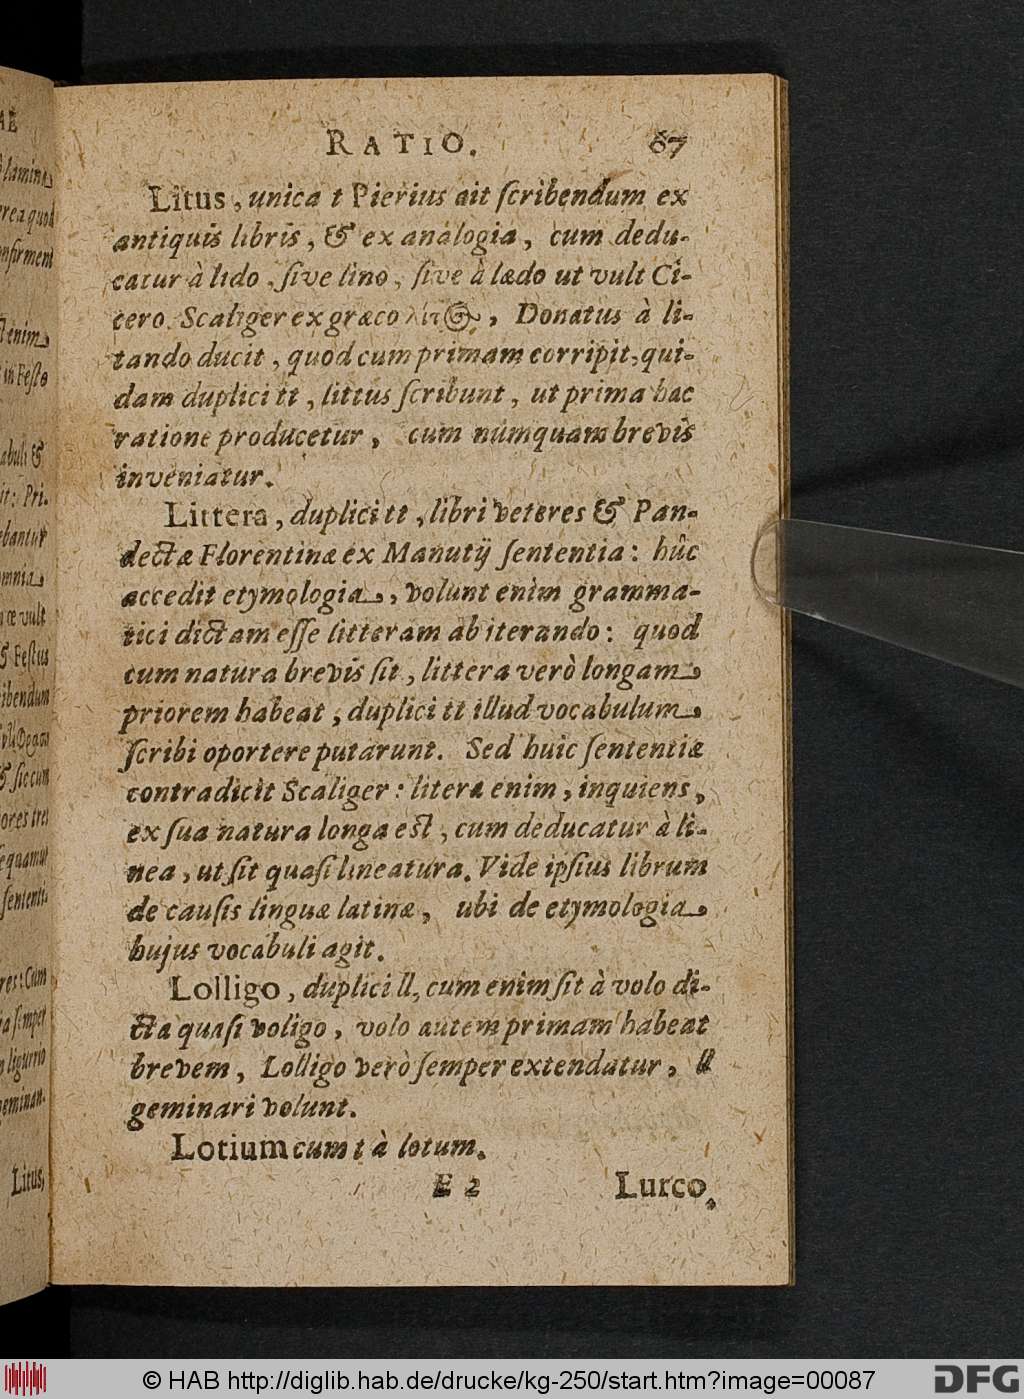 RATIO. 67
Litus, unica t Pierius ait ſcribendum ex
antiquis libris, & ex analogia, cum dedu-
catur à lido, ſive lino, ſive à lædo ut vult Ci-
cero. Scaliger ex græco λιτος, Donatus à li-
tando ducit, quod cum primam corripit, qui-
dam duplici tt, littus ſcribunt, ut prima hac
ratione producetur, cum numquam brevis
inveniatur.
Littera, duplici tt, libri veteres & Pan-
dectæ Florentinæ ex Manutij ſententia: hûc
accedit etymologia, volunt enim gramma-
tici dictam eſſe litteram ab iterando: quod
cum natura brevis ſit, littera verò longam
priorem habeat, duplici tt illud vocabulum
ſcribi oportere putarunt. Sed huic ſententiæ
contradicit Scaliger: litera enim, inquiens,
ex ſua natura longa eſt, cum deducatur à li-
nea, ut ſit quaſi lineatura. Vide ipſius librum
de cauſis linguæ latinæ, ubi de etymologia
hujus vocabuli agit.
Lolligo, duplici ll, cum enim ſit à volo di-
cta quaſi voligo, volo autem primam habeat
brevem, Lolligo verò ſemper extendatur, ll
geminari volunt.
Lotium cum t à lotum.
E 2 Lurco,
© HAB http://diglib.hab.de/drucke/kg-250/start.htm?image=00087
DFG